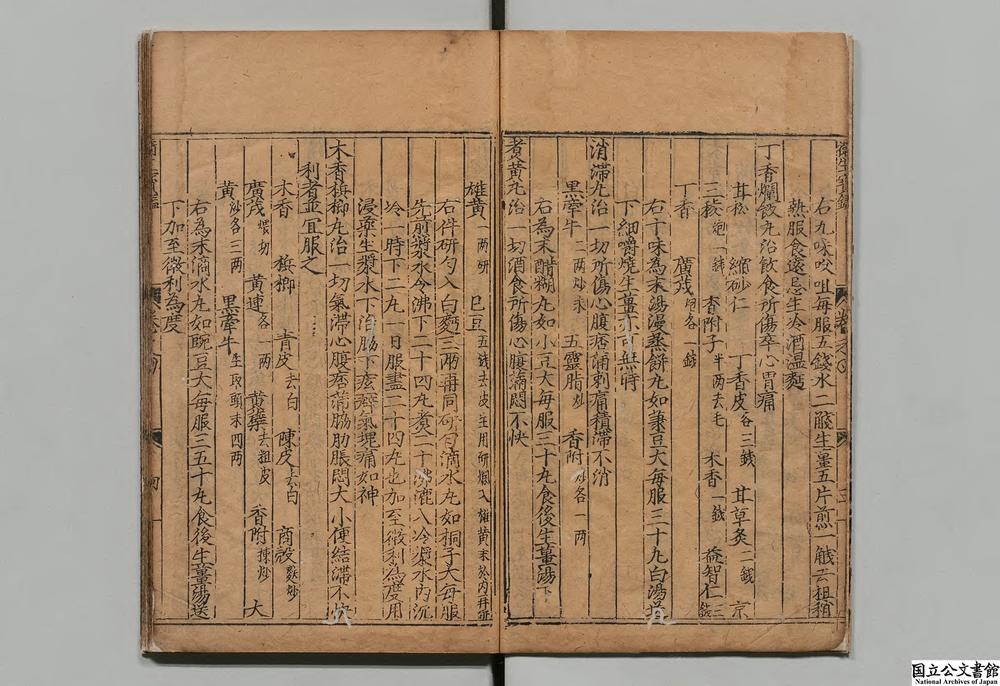 右九味㕮咀每服五錢水二盞生薑五片煎一盞去粗稍
熱服食遠忌生冷酒溫麪
丁香爛飯丸治飲食所傷卒心胃痛
甘松 縮砂仁 丁香皮各三錢 甘草炙二錢 京
三稜炮一錢 香附子半兩去毛 木香一錢 益智仁三錢
丁香 廣茂炮各一錢
右十味為末湯浸蒸餅丸如菉豆大每服三十九白湯送
下細嚼燒生薑亦可無時
消滯丸治一切所傷心腹痞滿刺痛積滯不消
黑牽牛二兩炒末 五靈脂炒 香附炒各一兩
右為末醋糊丸如小豆大每服三十丸食後生薑湯下
煮黃丸治一切酒食所傷心腹滿悶不快
雄黃一兩研 巴豆五錢去皮生用研爛入雄黃末於內再研
右件研勻入白麪二兩再同研勻滴水丸如桐子大每服
先煎漿水令沸下二十四丸煮二十沸漉入冷漿水內沉
冷一時下二丸一日服盡二十四丸也加至微利為度用
浸藥生漿水下治脇下痃癖氣塊痛如神
木香檳榔丸治一切氣滯心腹痞滿脇肋脹悶大小便結滯不快
利者並宜服之
木香 檳榔 青皮去白 陳皮去白 商殼麩炒
廣茂煨切 黃連各一兩 黃蘗去粗皮 香附揀炒 大
黃炒各三兩 黑牽牛生取頭末四兩
右為末滴水丸如豌豆大每服三五十丸食後生薑湯送
下加至微利為度
国立公文書館
National Archives of Japan